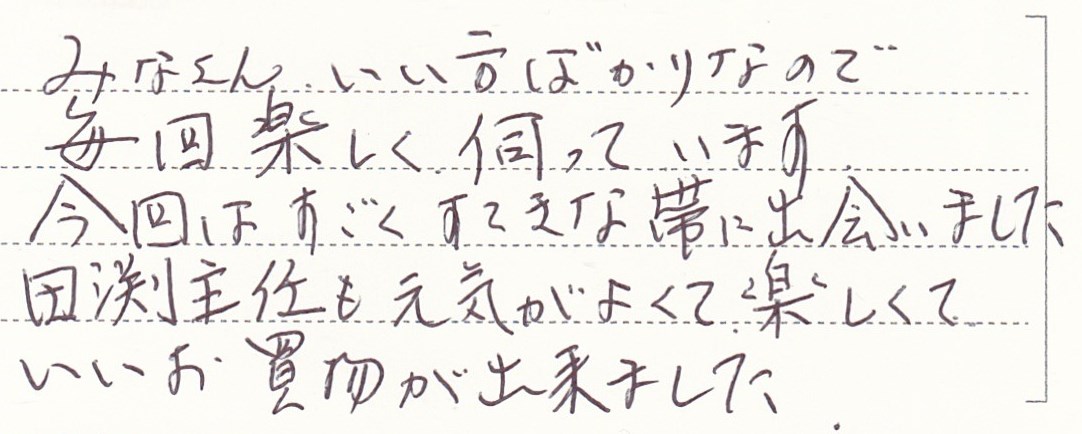 みなさん、いい方ばかりなので
毎回楽しく伺っています
今回はすごくすてきな帯に出会いました
田渕主任も元気がよくて楽しくて
いいお買物が出来ました.